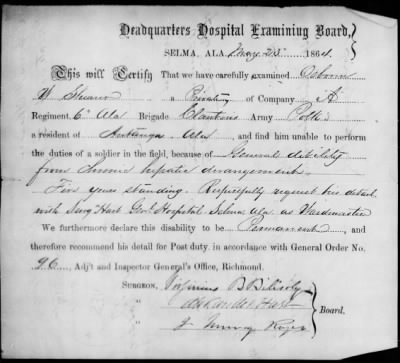 Headquarters Hospital Examining Board,
SELMA, ALA. May 25" 1864.
This will Certify That we have carefully examined Osborn
a Private of Company A
Regiment, 6" Ala Brigade Clantons Army Polks
a resident of Autauga Ala and find him unable to perform
the duties of a soldier in the field, because of General debility
from hepatic derangement
Five years standing. Respectfully request his detail
with Surg Hart Genl Hospital Selma Ala as Wardmaster
We furthermore declare this disability to be Permanent, and
therefore recommend his detail for Post duty, in accordance with General Order No.
96, Adj't and Inspector General's Office, Richmond.
SURGEON, B
" Alexander Hart
" Board.